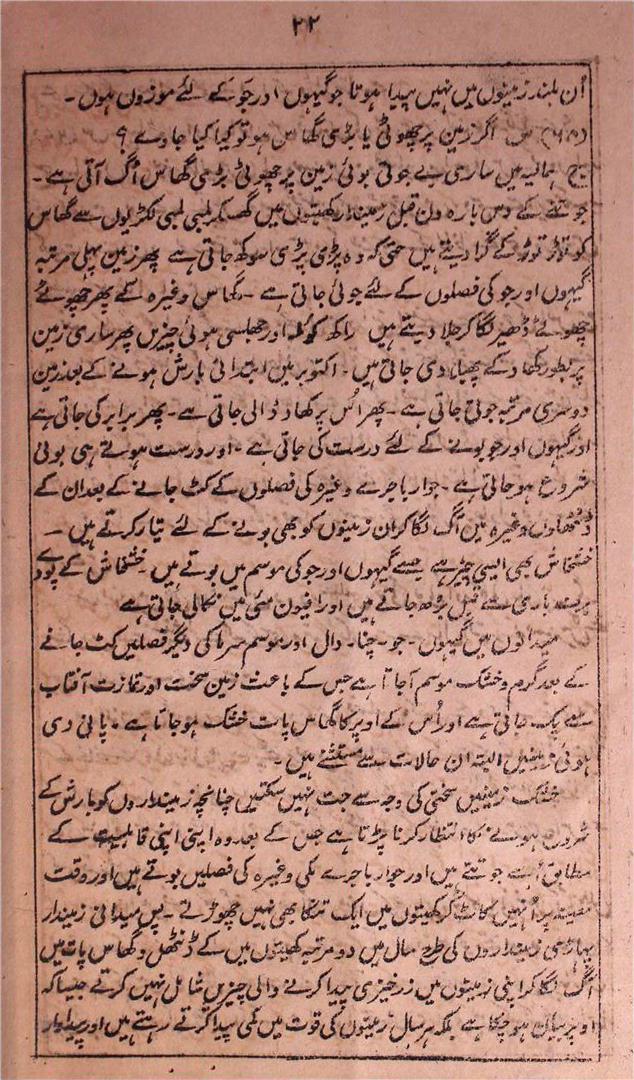 ۲۲
اُن بلند زمینوں میں نہیں پیدا ہوتا جو گیہوں اور جَو کے لئے موزوں ہوں ۔
س اگر زمین پر چھوٹی یا بڑی گھاس ہو تو کیا کیا جاوے ؟
ج ہمالیہ میں ساری بے جوتی بوئی زمین پر چھوٹی بڑی گھاس اُگ آتی ہے ۔
جوتنے کے دس بارہ دن قبل زمیندار کھیتوں میں گھسکر لمبی لمبی لکڑیوں سے گھاس
کو توڑ توڑ کے گرا دیتے ہیں حتیٰ کہ وہ پڑی پڑی سوکھ جاتی ہے پھر زمین پہلی مرتبہ
گیہوں اور جو کی فصلوں کے لئے جوتی جاتی ہے ۔ گھاس وغیرہ کے پھر چھوٹے
چھوٹے ڈھیر لگا کر جلا دیتے ہیں راکھ کوئلہ اور جھلسی ہوئی چیزیں پھر ساری زمین
پر بطور کھاد کے پھیلا دی جاتی ہیں ۔ اکتوبر میں ابتدائی بارش ہونے کے بعد زمین
دوسری مرتبہ جوتی جاتی ہے ۔ پھر اُس پر کھاد ڈالی جاتی ہے ۔ پھر برابر کی جاتی ہے
اور گیہوں اور جو بونے کے لئے درست کی جاتی ہے ۔ اور درست ہوتے ہی بوئی
شروع ہو جاتی ہے ۔ جوار باجرے وغیرہ کی فصلوں کے کٹ جانے کے بعد ان کے
ڈنٹھلوں وغیرہ میں آگ لگا کر ان زمینوں کو بھی بونے کے لئے تیار کرتے ہیں ۔
خشخاش بھی ایسی چیز ہے جسے گیہوں اور جو کی موسم میں بوتے ہیں ۔ خشخاش کے پودے
برسد باری سے قبل بڑھ جاتے ہیں اور افیون مئی میں نکالی جاتی ہے
میدانوں میں گیہوں ۔ جو ۔ چنا ۔ دال اور موسم سرما کی دیگر فصلیں کٹ جانے
کے بعد گرم و خشک موسم آجاتا ہے جس کے باعث زمین سخت اور تمازت آفتاب
سے پک جاتی ہے اور اُس کے اوپر کا گھاس پات خشک ہو جاتا ہے ۔ پانی دی
ہوئی زمینیں البتہ ان حالات سے مستثنےٰ ہیں ۔
خشک زمینیں سختی کی وجہ سے جت نہیں سکتیں چنانچہ زمینداروں کو بارش کے
شروع ہونے کا انتظار کرنا پڑتا ہے جس کے بعد وہ اپنی اپنی قابلیت کے
مطابق اُسے جوتتے ہیں اور جوار باجرے مکی وغیرہ کی فصلیں بوتے ہیں اور وقت
معینہ پر اُنہیں کاٹ کر کھیتوں میں ایک تنکا بھی نہیں چھوڑتے ۔ پس میدانی زمیندار
پہاڑی زمینداروں کی طرح سال میں دو مرتبہ کھیتوں میں کے ڈنٹھل و گھاس پات میں
آگ لگا کر اپنی زمینوں میں زرخیزی پیدا کرنے والی چیزیں شامل نہیں کرتے جیسا کہ
اوپر بیان ہو چکا ہے بلکہ ہر سال زمینوں کی قوت میں کمی پیدا کرتے رہتے ہیں اور پیداوار